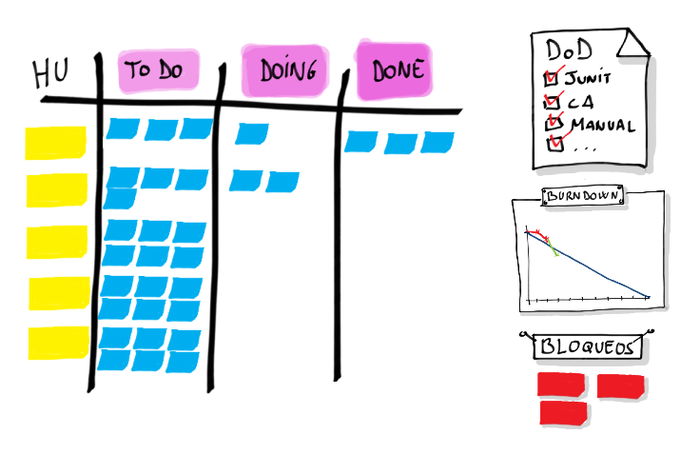 HU
TO DO
DOING
DONE
DOD
JUNIT
CA
MANUAL
...
BURNDOWN
BLOQUEOS